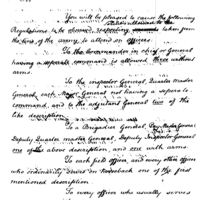 You will be pleased to cause the following
Regulations to be observed, respecting
taken
from the line of the army, to attend on officers.
To the Commander in chief or General
having a separate command is allowed three without
arms.
To the inspector General, Quarter Master
General, each General not having a separate
command, and to the adjutant General two of the
like description.
To a Brigadier General,
Deputy Quarter master General, Deputy Inspector General
one of the above description, and one with arms.
To each field officer, and every other officer
who ordinarily serves on Horseback one of the first
mentioned description.
To every officer who usually serves